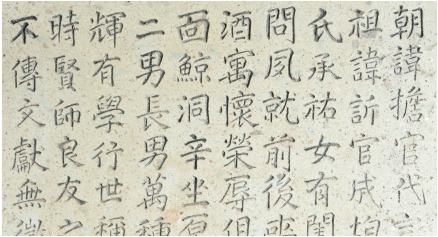 朝諱擔官代言
祖諱訢官成均
氏承祐女有閨
問夙就前後喪
酒寓懷榮辱俱
面鯨洞辛坐原
二男長男萬種
輝有學行世稱
時賢師良友之
不傳文獻無徵